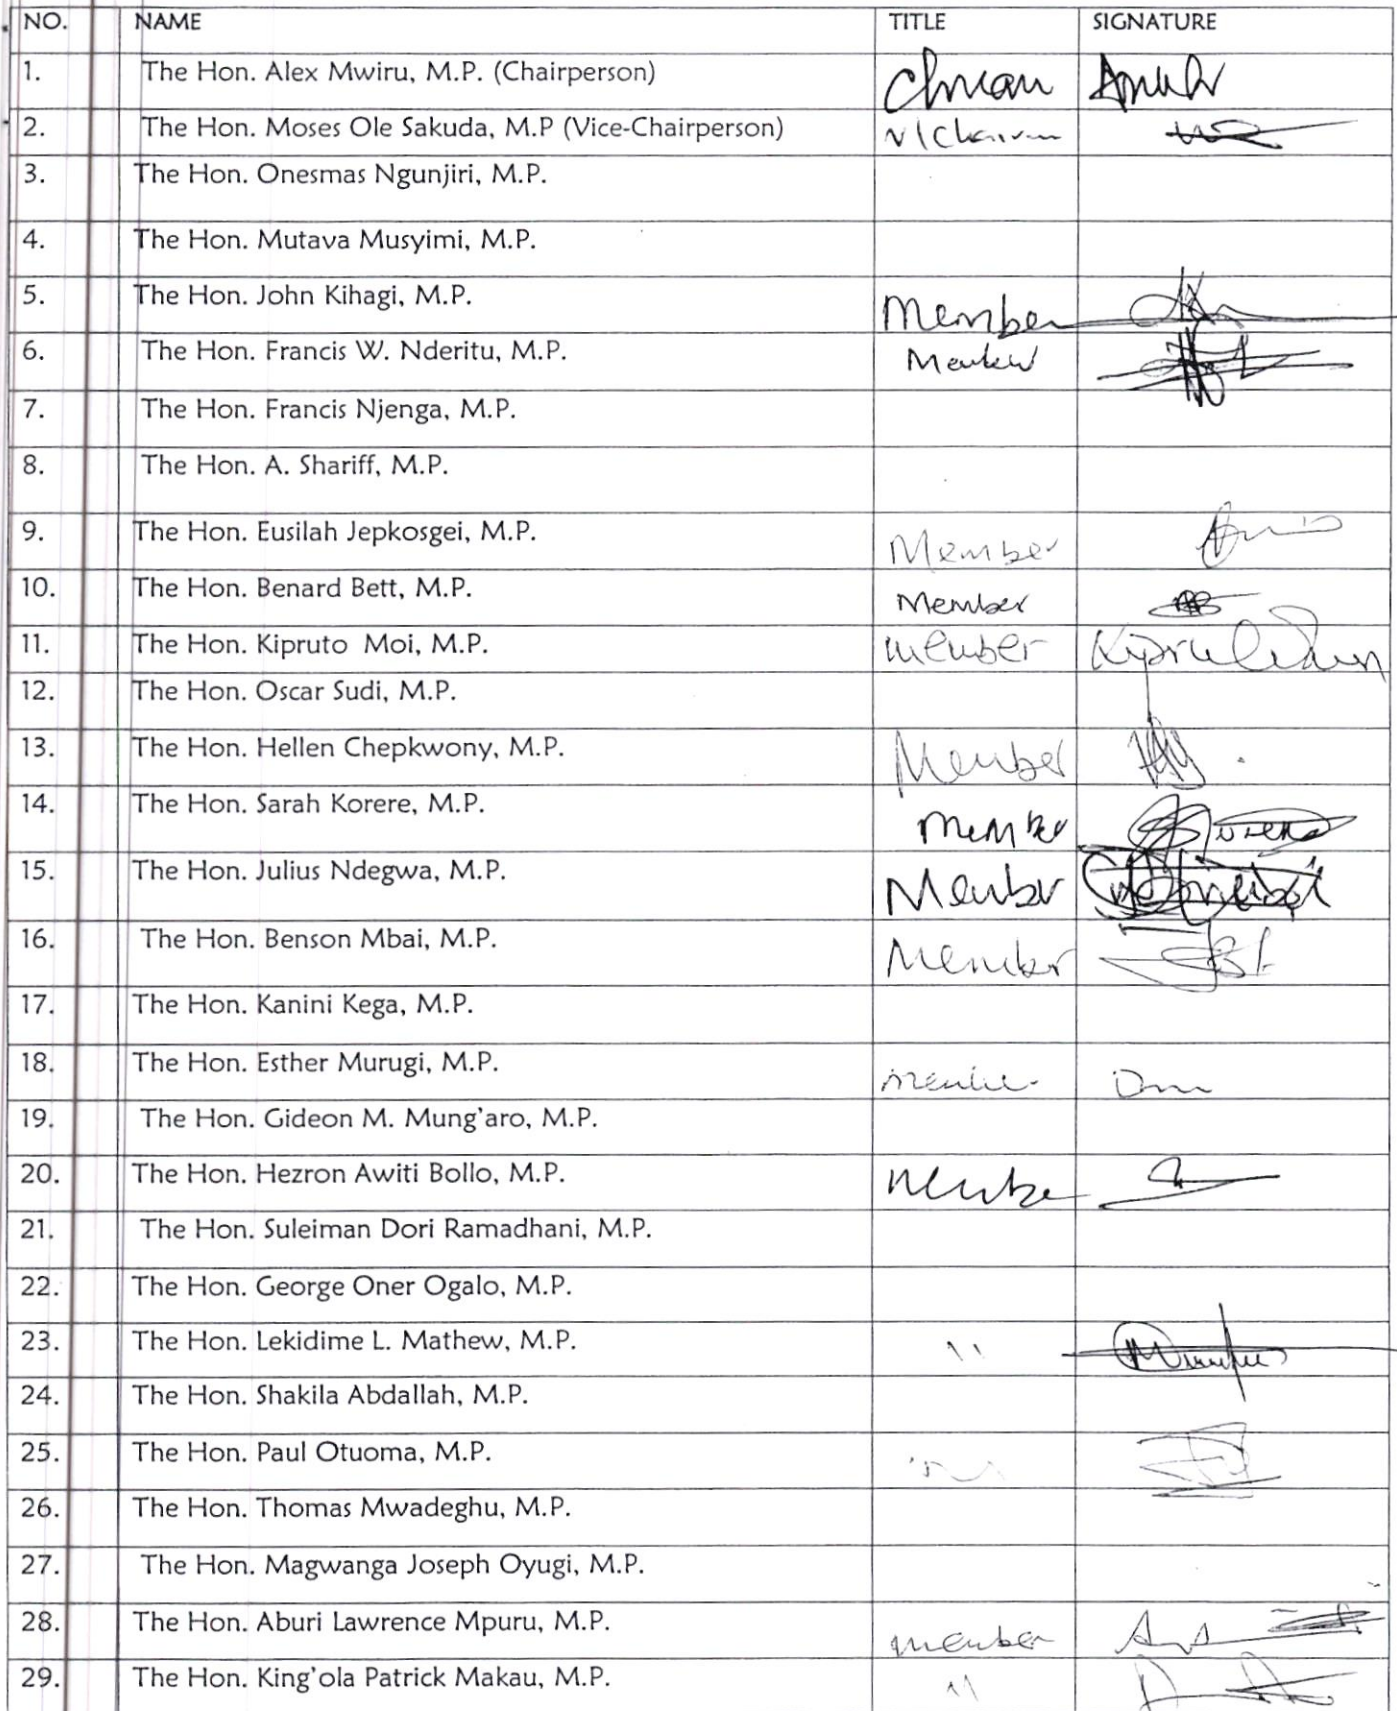 NO. NAME TITLE SIGNATURE
1. The Hon. Alex Mwiru, M.P. (Chairperson)
2. The Hon. Moses Ole Sakuda, M.P (Vice-Chairperson)
3. The Hon. Onesmas Ngunjiri, M.P.
4. The Hon. Mutava Musyimi, M.P.
5. The Hon. John Kihagi, M.P. Member
6. The Hon. Francis W. Nderitu, M.P. Member
7. The Hon. Francis Njenga, M.P.
8. The Hon. A. Shariff, M.P.
9. The Hon. Eusilah Jepkosgei, M.P. Member
10. The Hon. Benard Bett, M.P. Member
11. The Hon. Kipruto Moi, M.P. member
12. The Hon. Oscar Sudi, M.P.
13. The Hon. Hellen Chepkwony, M.P. Member
14. The Hon. Sarah Korere, M.P. member
15. The Hon. Julius Ndegwa, M.P. Member
16. The Hon. Benson Mbai, M.P. Member
17. The Hon. Kanini Kega, M.P.
18. The Hon. Esther Murugi, M.P. member
19. The Hon. Gideon M. Mung'aro, M.P.
20. The Hon. Hezron Awiti Bollo, M.P. Member
21. The Hon. Suleiman Dori Ramadhani, M.P.
22. The Hon. George Oner Ogalo, M.P.
23. The Hon. Lekidime L. Mathew, M.P. "
24. The Hon. Shakila Abdallah, M.P.
25. The Hon. Paul Otuoma, M.P.
26. The Hon. Thomas Mwadeghu, M.P.
27. The Hon. Magwanga Joseph Oyugi, M.P.
28. The Hon. Aburi Lawrence Mpuru, M.P. member
29. The Hon. King'ola Patrick Makau, M.P. "